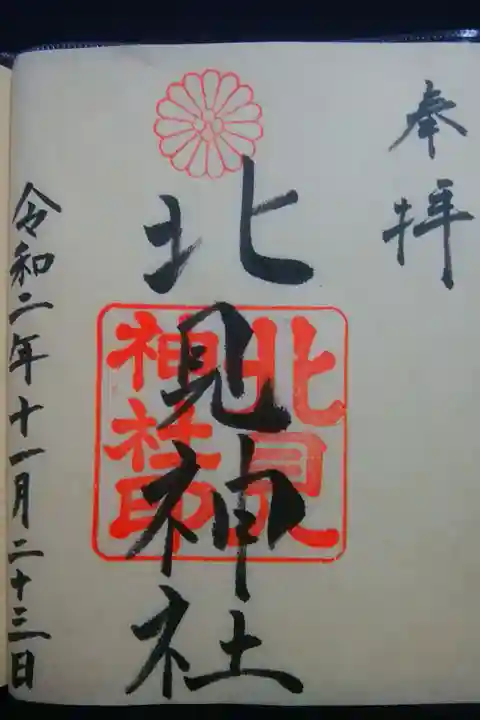 奉拝
北見神社
北見
神社印
令和二年十一月二十三日